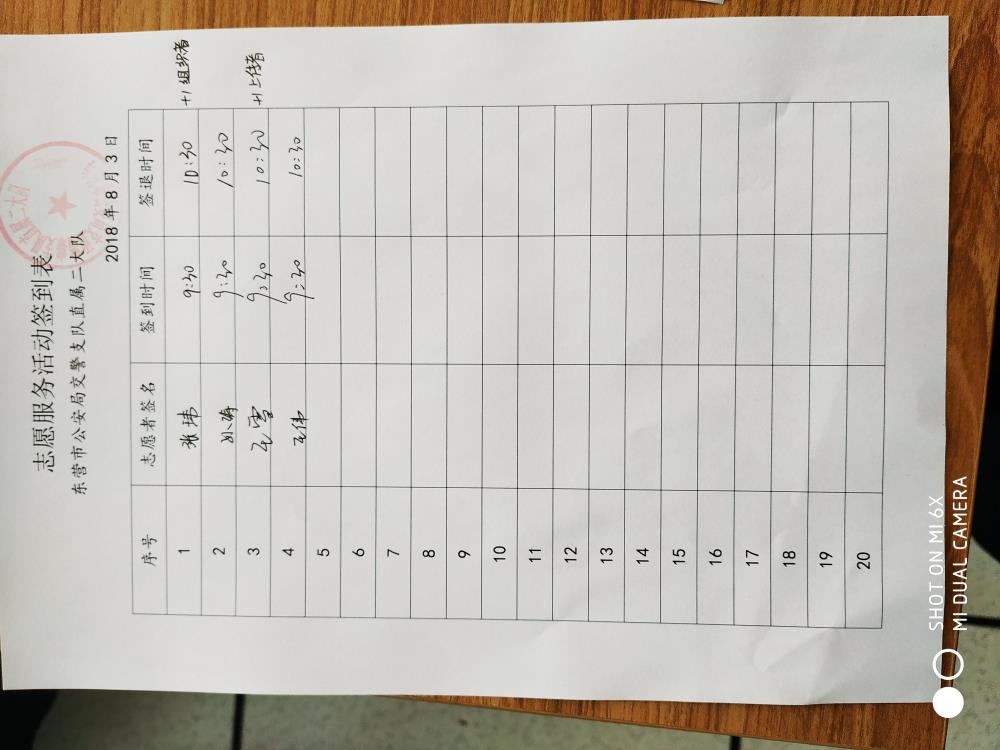 志愿服务活动签到表
东营市公安局交警支队直属二大队
2018年8月3日
序号 志愿者签名 签到时间 签退时间
1 张玮 9:30 10:30 +1组织者
2 9:30 10:30
3 王雪 9:30 10:30 +1上传者
4 王伟 9:30 10:30
5
6
7
8
9
10
11
12
13
14
15
16
17
18
19
20
SHOT ON MI 6X
MI DUAL CAMERA